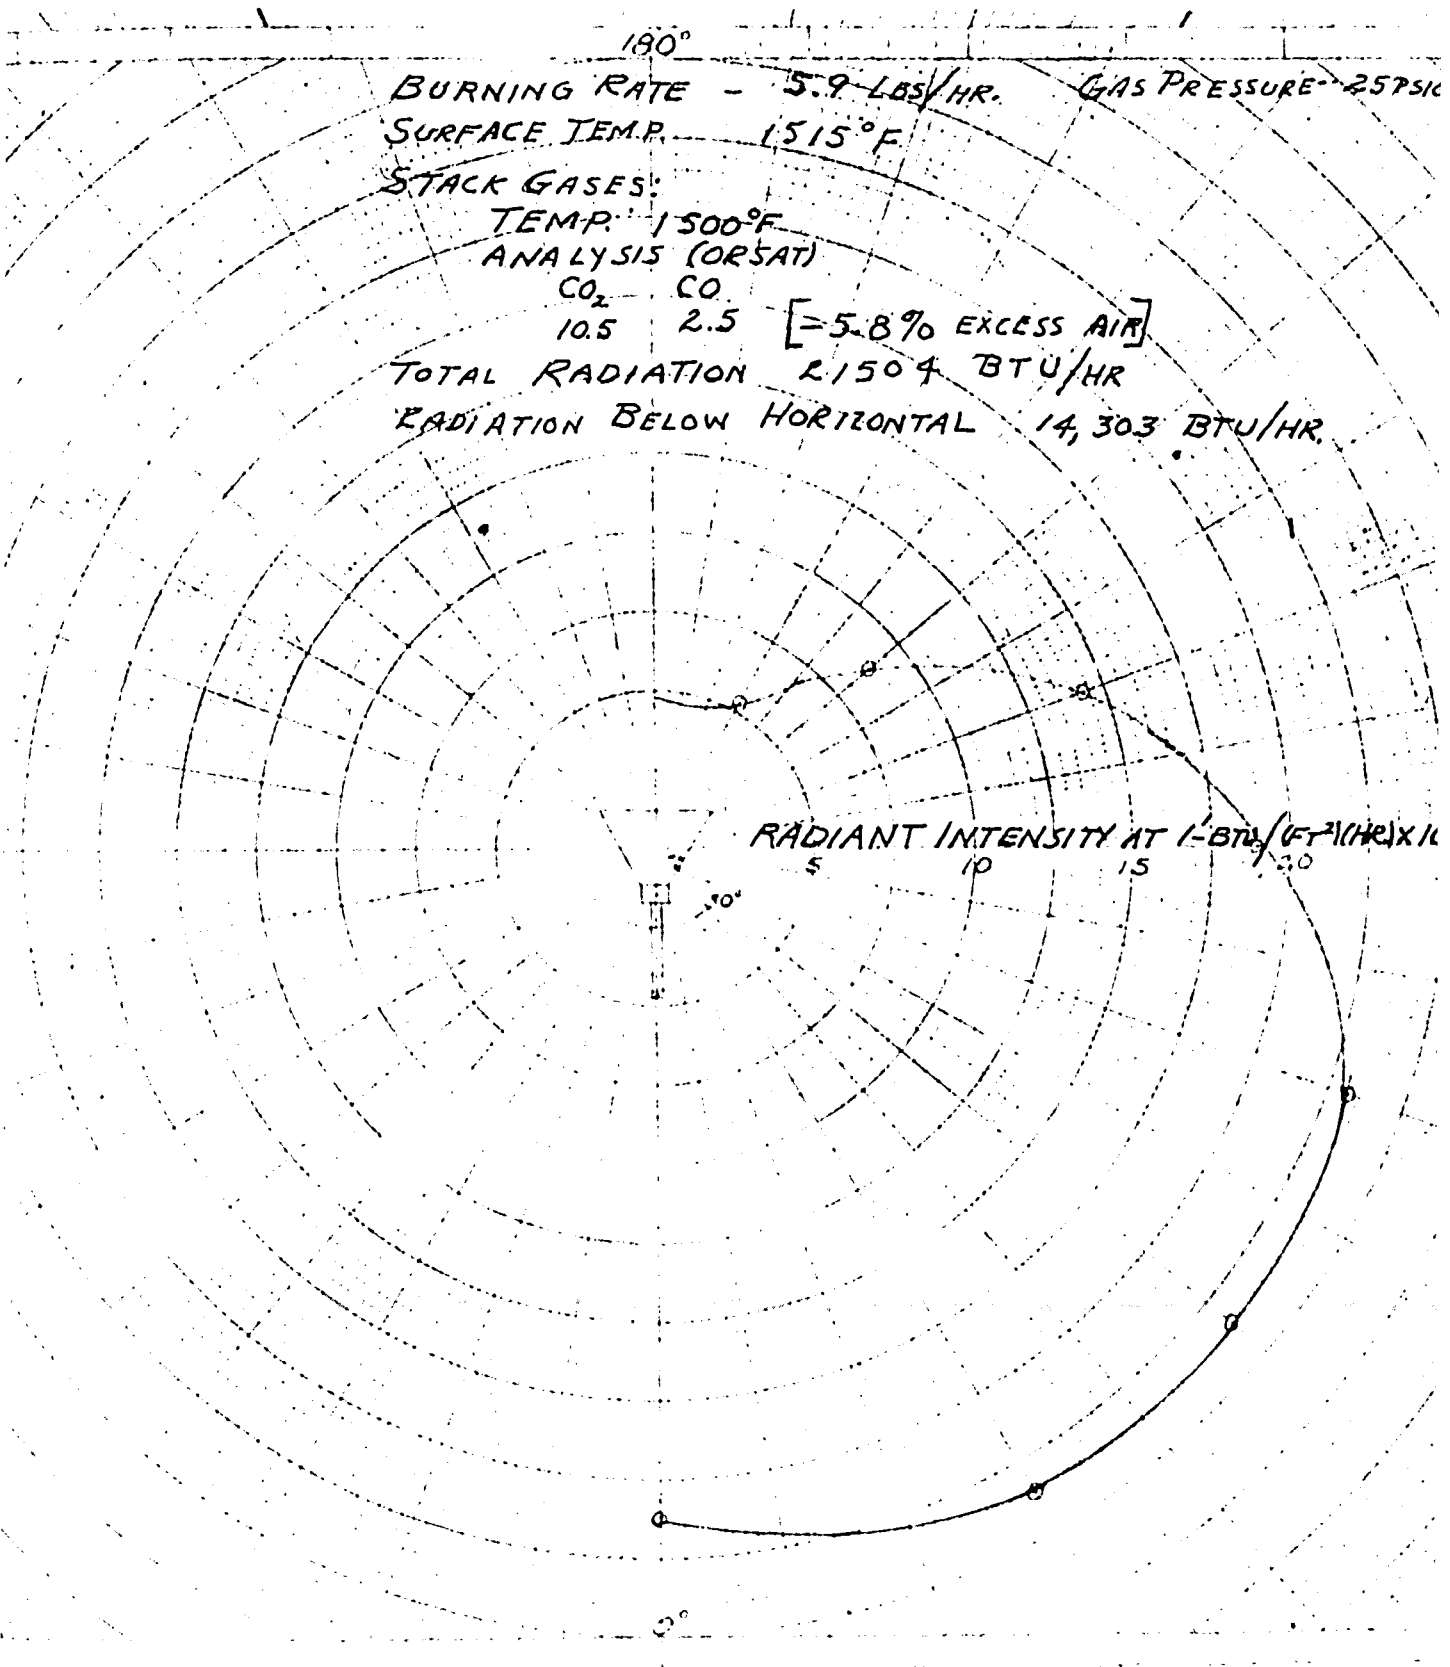 180°
BURNING RATE - 5.9 LBS/HR. GAS PRESSURE - 25 PSIG
SURFACE TEMP. 1515°F
STACK GASES:
TEMP. 1500°F
ANALYSIS (ORSAT)
CO₂ CO
10.5 2.5 [=5.8% EXCESS AIR]
TOTAL RADIATION 21504 BTU/HR
RADIATION BELOW HORIZONTAL 14,303 BTU/HR.
RADIANT INTENSITY AT 1'-BTU/(FT²)(HR)X10
5 10 15 20
0°